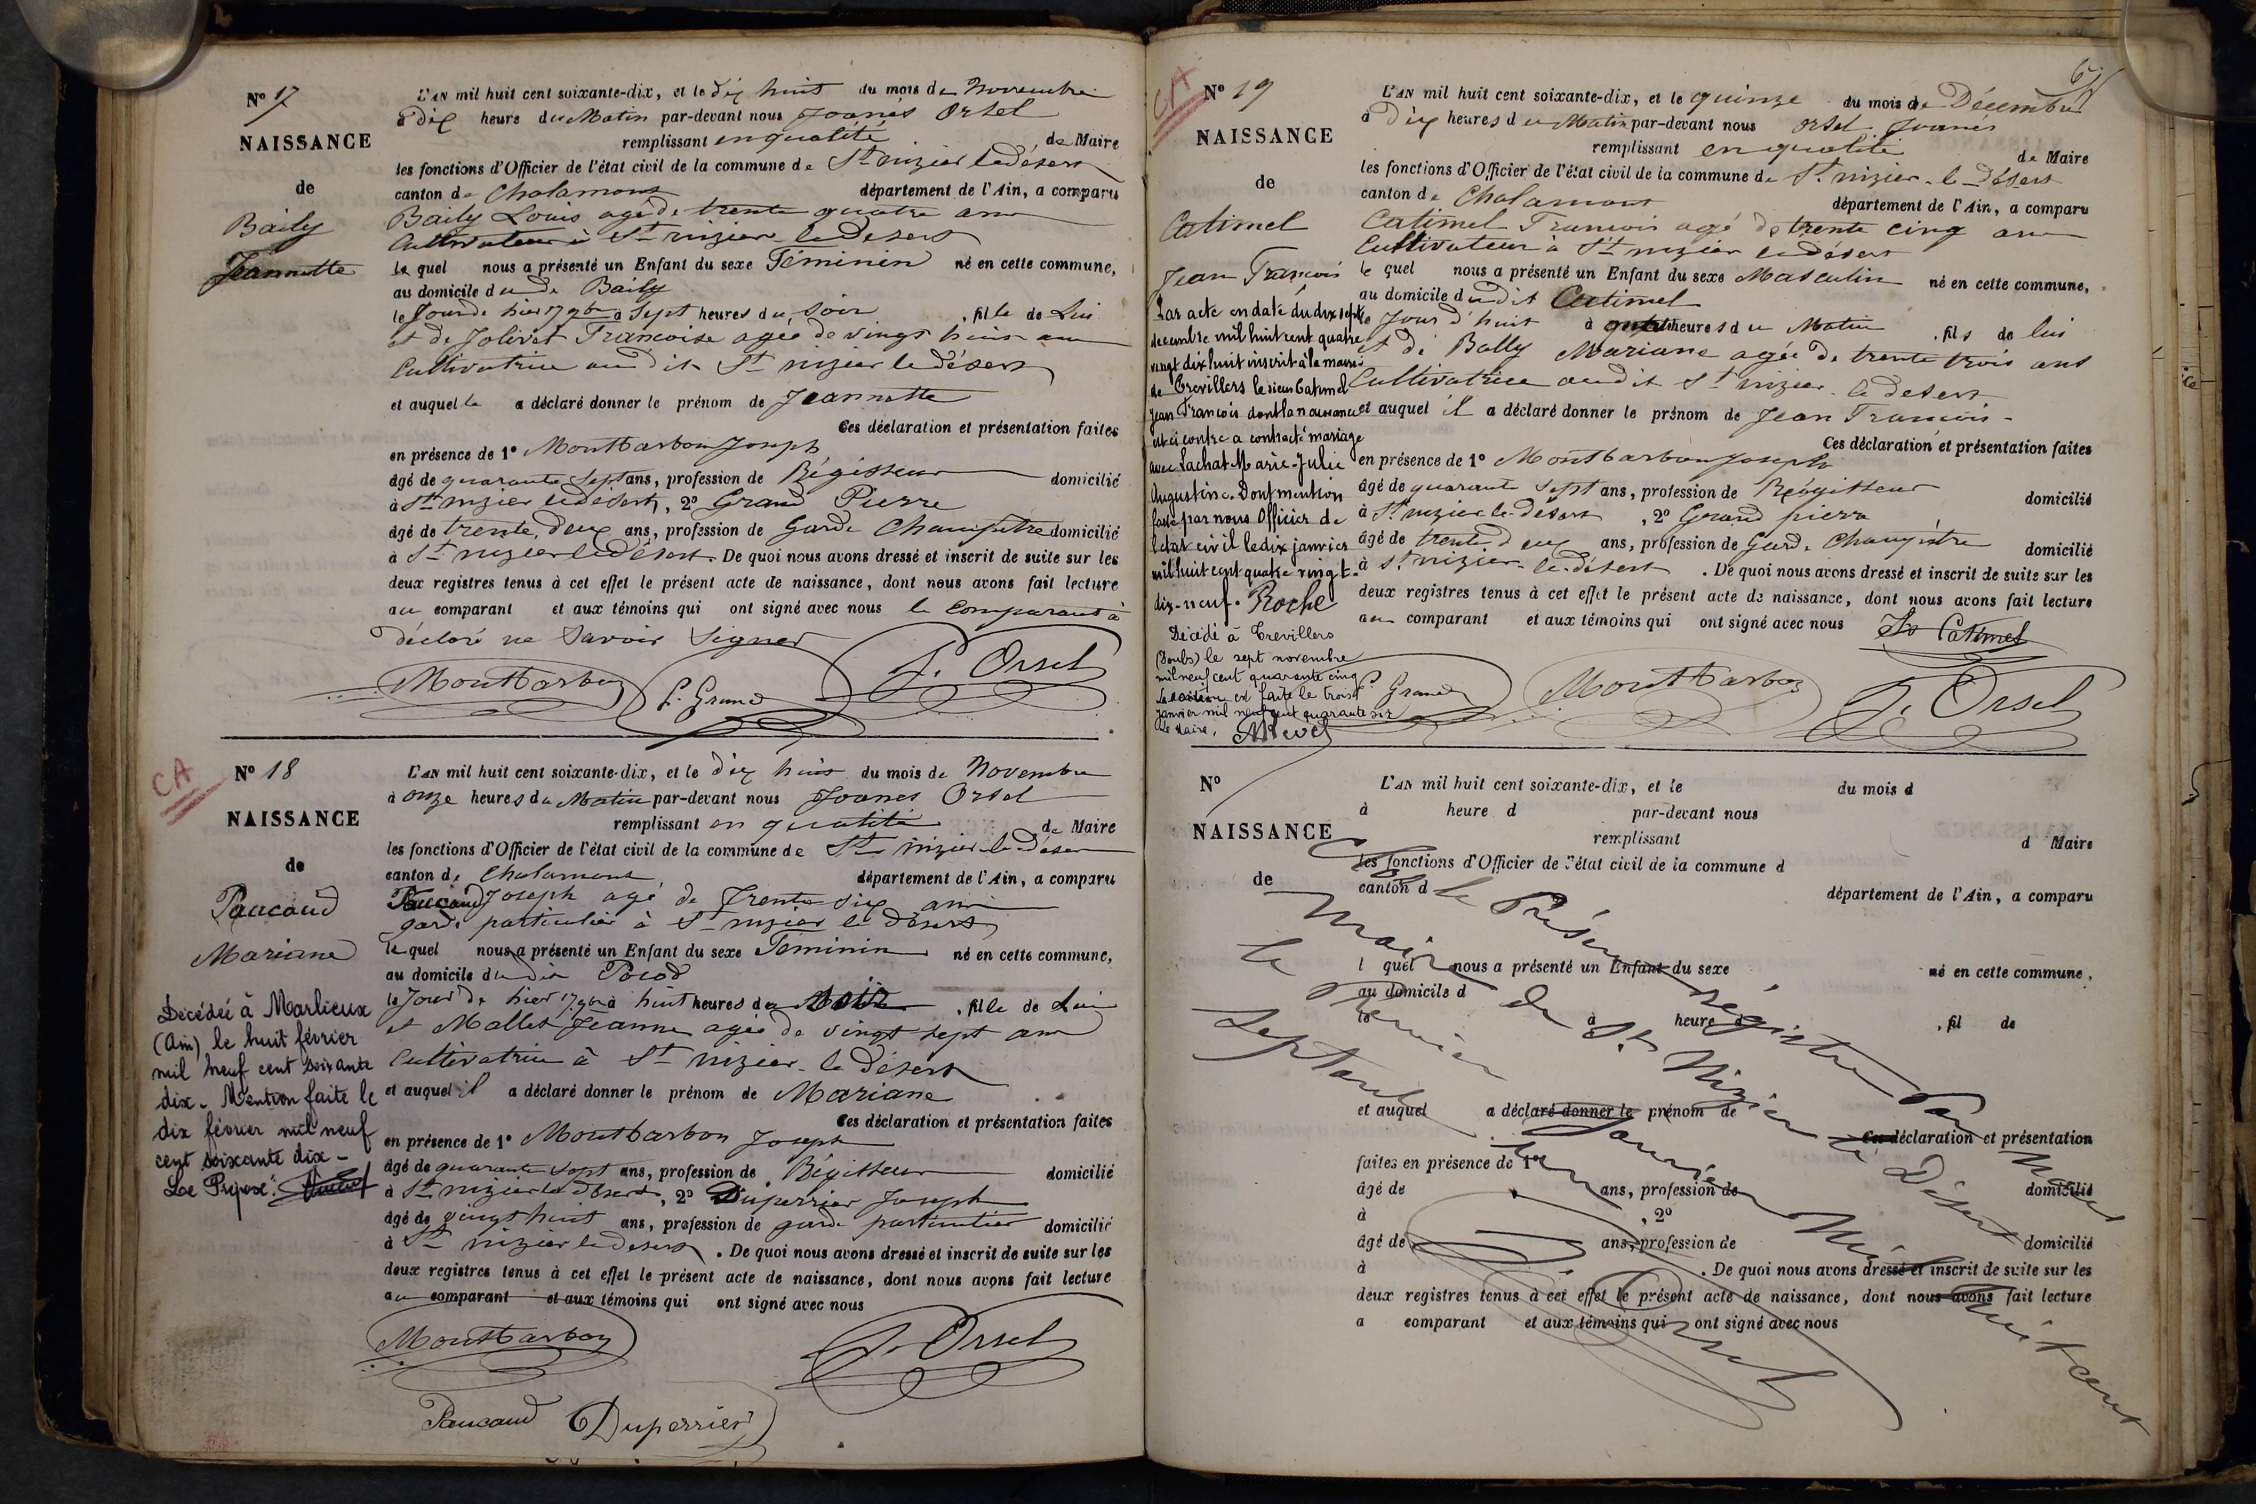 N° 17
NAISSANCE
de
Baily
Jeannette
L'AN mil huit cent soixante-dix, et le dix huit du mois de Novembre
à dix heure du Matin par-devant nous Joanès Orsel
remplissant en qualité de Maire
les fonctions d'Officier de l'état civil de la commune de St nizier le désert
canton de Chalamont département de l'Ain, a comparu
Baily Louis agé de trente quatre ans
Cultivateur à St nizier le désert
le quel nous a présenté un Enfant du sexe Féminin né en cette commune,
au domicile du de Baily
le Jour de hier 17 9bre à Sept heures du soir , fille de Lui
et de Jolivet Francoise agée de vingt huit ans
Cultivatrice au dit St nizier le désert
et auquel le a déclaré donner le prénom de Jeannette
Ces déclaration et présentation faites
en présence de 1° Montbarbon Joseph
âgé de quarante sept ans, profession de Régisseur domicilié
à St nizier le désert, 2° Grand Pierre
âgé de trente deux ans, profession de Garde Champêtre domicilié
à St nizier le désert. De quoi nous avons dressé et inscrit de suite sur les
deux registres tenus à cet effet le présent acte de naissance, dont nous avons fait lecture
au comparant et aux témoins qui ont signé avec nous le Comparant à
déclaré ne Savoir Signer
Montbarbon P. Grand J. Orsel
CA
N° 18
NAISSANCE
de
Paucaud
Mariane
Decédée à Marlieux
(Ain) le huit février
mil neuf cent soixante
dix. Mention faite le
dix février mil neuf
cent soixante dix -
Le Préposé:
L'AN mil huit cent soixante-dix, et le dix huit du mois de Novembre
à onze heures du Matin par-devant nous Joanes Orsel
remplissant en qualité de Maire
les fonctions d'Officier de l'état civil de la commune de St nizier le désert
canton de Chalamont département de l'Ain, a comparu
Paucaud Joseph agé de Trente six ans
garde particulier à St nizier le désert
le quel nous a présenté un Enfant du sexe Féminin né en cette commune,
au domicile du dit
le Jour de hier 17 9bre à huit heures du Matin , fille de Lui
et Mallet Jeanne agée de vingt sept ans
Cultivatrice à St nizier le désert
et auquel il a déclaré donner le prénom de Mariane
Ces déclaration et présentation faites
en présence de 1° Montbarbon Joseph
âgé de quarante sept ans, profession de Régisseur domicilié
à St nizier le désert, 2° Duperrier Joseph
âgé de vingt huit ans, profession de garde particulier domicilié
à St nizier le désert. De quoi nous avons dressé et inscrit de suite sur les
deux registres tenus à cet effet le présent acte de naissance, dont nous avons fait lecture
au comparant et aux témoins qui ont signé avec nous
Montbarbon J. Orsel
Paucaud Duperrier
CA
N° 19
NAISSANCE
de
Catimel
Jean François
Par acte en date du dix sept
decembre mil huit cent quatre
vingt dix huit inscrit à la mairie
de Trevillers le sieur Catimel
Jean François dont la naissance
est ci contre a contracté mariage
avec Lachat Marie-Julie
Augustine. Dont mention
faite par nous Officier de
l'état civil le dix janvier
mil huit cent quatre vingt
dix-neuf. Roche
Décédé à Trevillers
(Doubs) le sept novembre
mil neuf cent quarante cinq
La mention est faite le trois
janvier mil neuf cent quarante six
Le Maire,
L'AN mil huit cent soixante-dix, et le quinze du mois de Décembre
à Dix heures du Matin par-devant nous Orsel Joanès
remplissant en qualité de Maire
les fonctions d'Officier de l'état civil de la commune de St nizier-le-Désert
canton de Chalamont département de l'Ain, a comparu
Catimel Francois agé de trente cinq ans
Cultivateur à St nizier le désert
le quel nous a présenté un Enfant du sexe Masculin né en cette commune,
au domicile du dit Catimel
le Jour d'huit à heures du Matin , fils de lui
et de Bally Mariane agée de trente trois ans
Cultivatrice au dit St nizier le desert
et auquel il a déclaré donner le prénom de Jean Francois -
Ces déclaration et présentation faites
en présence de 1° Montbarbon Joseph
âgé de quarante sept ans, profession de Régisseur domicilié
à St nizier le désert, 2° Grand pierre
âgé de trente deux ans, profession de Garde Champêtre domicilié
à St nizier-le-désert. De quoi nous avons dressé et inscrit de suite sur les
deux registres tenus à cet effet le présent acte de naissance, dont nous avons fait lecture
au comparant et aux témoins qui ont signé avec nous
Catimel
P. Grand Montbarbon J. Orsel
N°
NAISSANCE
de
L'AN mil huit cent soixante-dix, et le du mois d
à heure d par-devant nous
remplissant d Maire
les fonctions d'Officier de l'état civil de la commune d
canton d département de l'Ain, a comparu
l quel nous a présenté un Enfant du sexe né en cette commune,
au domicile d
le à heure d , fil de
et auquel a déclaré donner le prénom de
Ces déclaration et présentation
faites en présence de 1°
âgé de ans, profession de domicilié
à , 2°
âgé de ans, profession de domicilié
à . De quoi nous avons dressé et inscrit de suite sur les
deux registres tenus à cet effet le présent acte de naissance, dont nous avons fait lecture
a comparant et aux témoins qui ont signé avec nous
Clos le Présent régistre Par Nous
Maire de St Nizier le Désert
le Premier Janvier Mil huit cent
septante un
J. Orsel